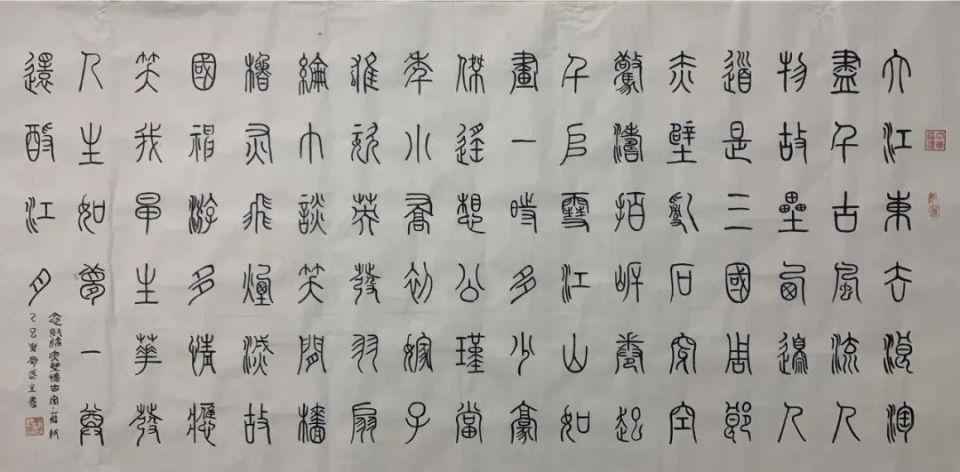 大江東去浪淘
盡千古風流人
物故壘西邊人
道是三國周郎
赤壁亂石穿空
驚濤拍岸卷起
千堆雪江山如
畫一時多少豪
傑遙想公瑾當
年小喬初嫁了
雄姿英發羽扇
綸巾談笑間檣
櫓灰飛煙滅故
國神游多情應
笑我早生華發
人生如夢一尊
還酹江月
念奴嬌赤壁懷古宋蘇軾